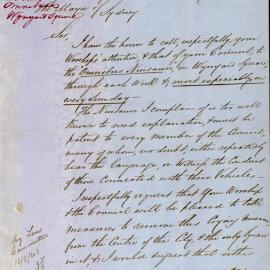 Omnibuses
Wynyard Square
The Mayor of Sydney
Sir,
I have the honor to call, respectfully, your
Worship's attention, & that of your Council, to
the Omnibus Nuisance in Wynyard Square,
through each Week & most especially on
every Sunday
The Nuisance I complain of is too well
known to need explanation, & must be
patent to every member of the Council,
many of whom, no doubt, either repeatedly
hear the language, or witness the Conduct
of those connected with these Vehicles—
I respectfully request that Your Worship
& the Council will be pleased to take
measures to remove this crying nuisance
from the Centre of the City, & the only Square
in it, & I would suggest that either
Committee